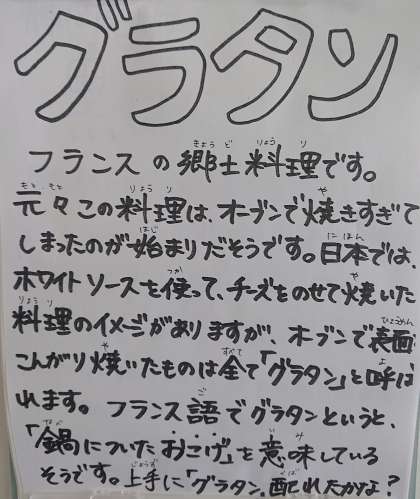 グラタン
フランスの郷土料理です。
元々この料理は、オーブンで焼きすぎて
しまったのが始まりだそうです。日本では、
ホワイトソースを使って、チーズをのせて焼いた
料理のイメージがありますが、オーブンで表面
こんがり焼いたものは全て「グラタン」と呼ば
れます。フランス語でグラタンというと、
「鍋についたおこげ」を意味している
そうです。上手に「グラタン」配れたかな?